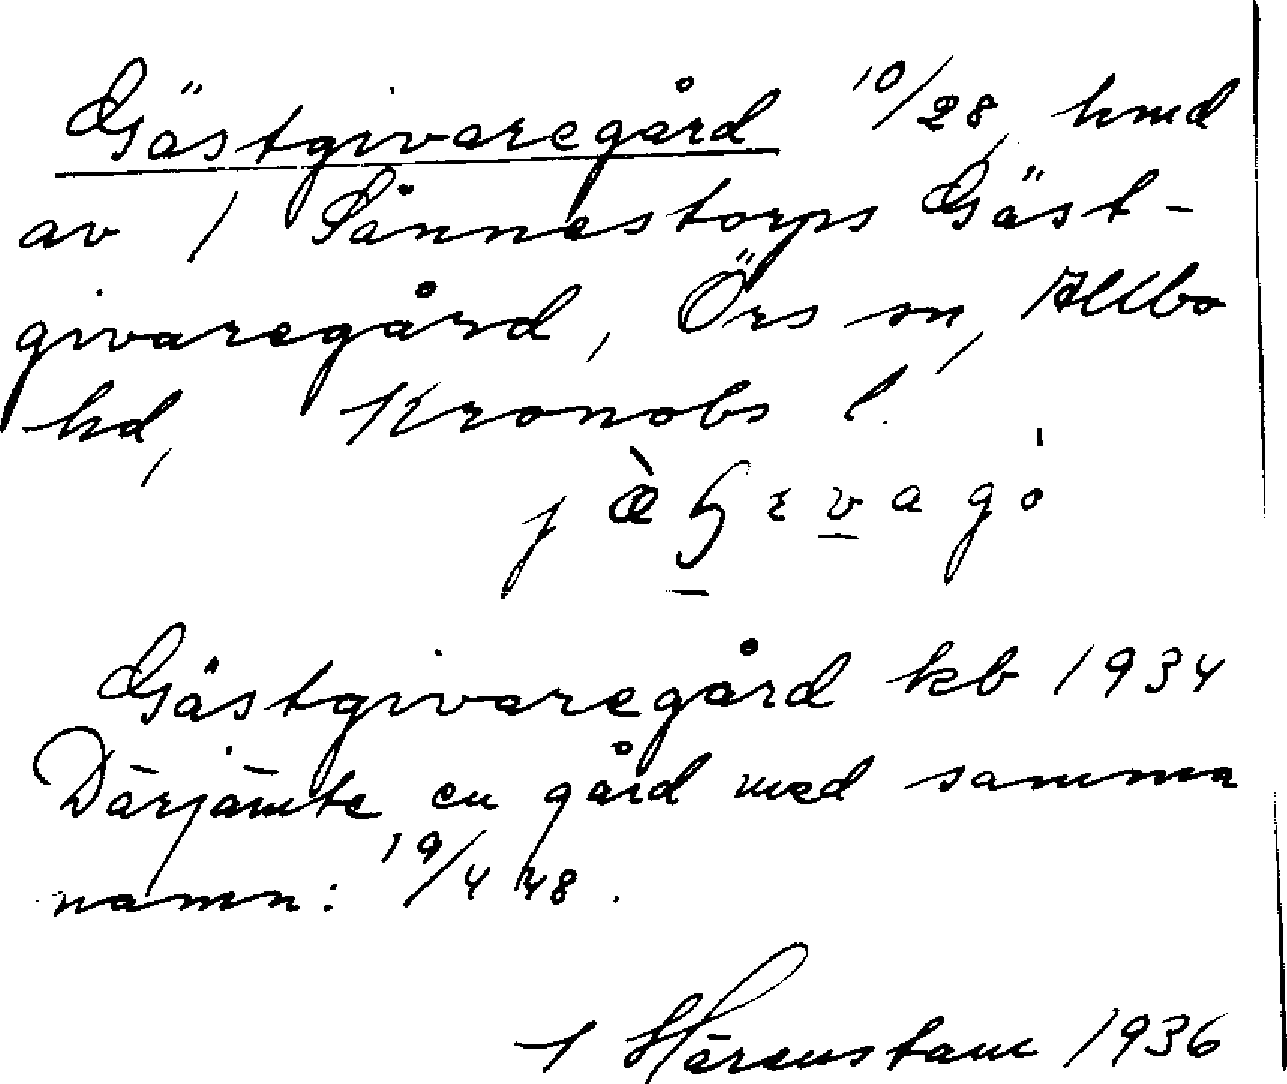 Gästgivaregård 10/28, hmd
av 1 Sånnestorps Gäst-
givaregård, Örs sn, Allbo
hd, Kronobs l.
Gästgivaregård kb 1934
Därjämte en gård med samma
namn: 19/4 48.
J Härenstam 1936